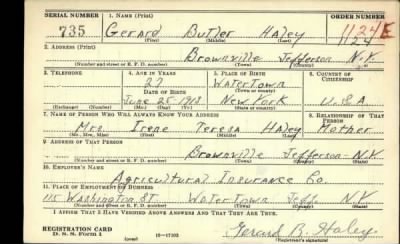 SERIAL NUMBER 1. NAME (Print) ORDER NUMBER
735 Gerard Butler Haley 1124E
(First) (Middle) (Last) 1124
2. ADDRESS (Print)
Brownville Jefferson N.Y.
(Number and street or R. F. D. number) (Town) (County) (State)
3. TELEPHONE 4. AGE IN YEARS 5. PLACE OF BIRTH 6. COUNTRY OF CITIZENSHIP
22 Watertown
DATE OF BIRTH (Town or county)
June 25 1918 New York U.S.A
(Exchange) (Number) (Mo.) (Day) (Yr.) (State or country)
7. NAME OF PERSON WHO WILL ALWAYS KNOW YOUR ADDRESS 8. RELATIONSHIP OF THAT PERSON
Mrs Irene Teresa Haley Mother
(Mr., Mrs., Miss) (First) (Middle) (Last)
9. ADDRESS OF THAT PERSON
Brownville Jefferson N.Y.
(Number and street or R. F. D. number) (Town) (County) (State)
10. EMPLOYER'S NAME
Agricultural Insurance Co.
11. PLACE OF EMPLOYMENT OR BUSINESS
115 Washington St Watertown Jeff. N.Y.
(Number and street or R. F. D. number) (Town) (County) (State)
I AFFIRM THAT I HAVE VERIFIED ABOVE ANSWERS AND THAT THEY ARE TRUE.
REGISTRATION CARD Gerard B. Haley
D. S. S. Form 1 16—17105 (Registrant's signature)